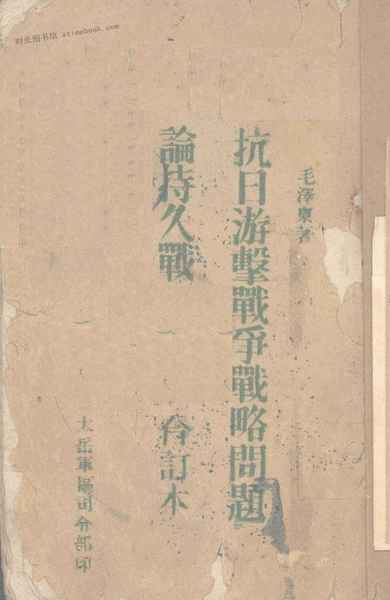 时光图书馆 atimebook.com
毛澤東著
抗日游擊戰爭戰略問題
論持久戰
合訂本
太岳軍區司令部印